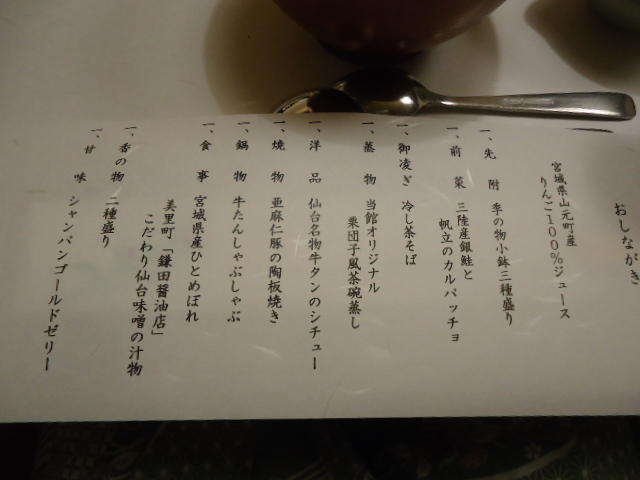 おしながき
宮城県山元町産
りんご100%ジュース
一、先附 季の物小鉢三種盛り
一、前菜 三陸産銀鮭と
帆立のカルパッチョ
一、御凌ぎ 冷し茶そば
一、蒸物 当館オリジナル
栗団子風茶碗蒸し
一、洋品 仙台名物牛タンのシチュー
一、焼物 亜麻仁豚の陶板焼き
一、鍋物 牛たんしゃぶしゃぶ
一、食事 宮城県産ひとめぼれ
美里町「鎌田醤油店」
こだわり仙台味噌の汁物
一、香の物 二種盛り
一、甘味 シャンパンゴールドゼリー